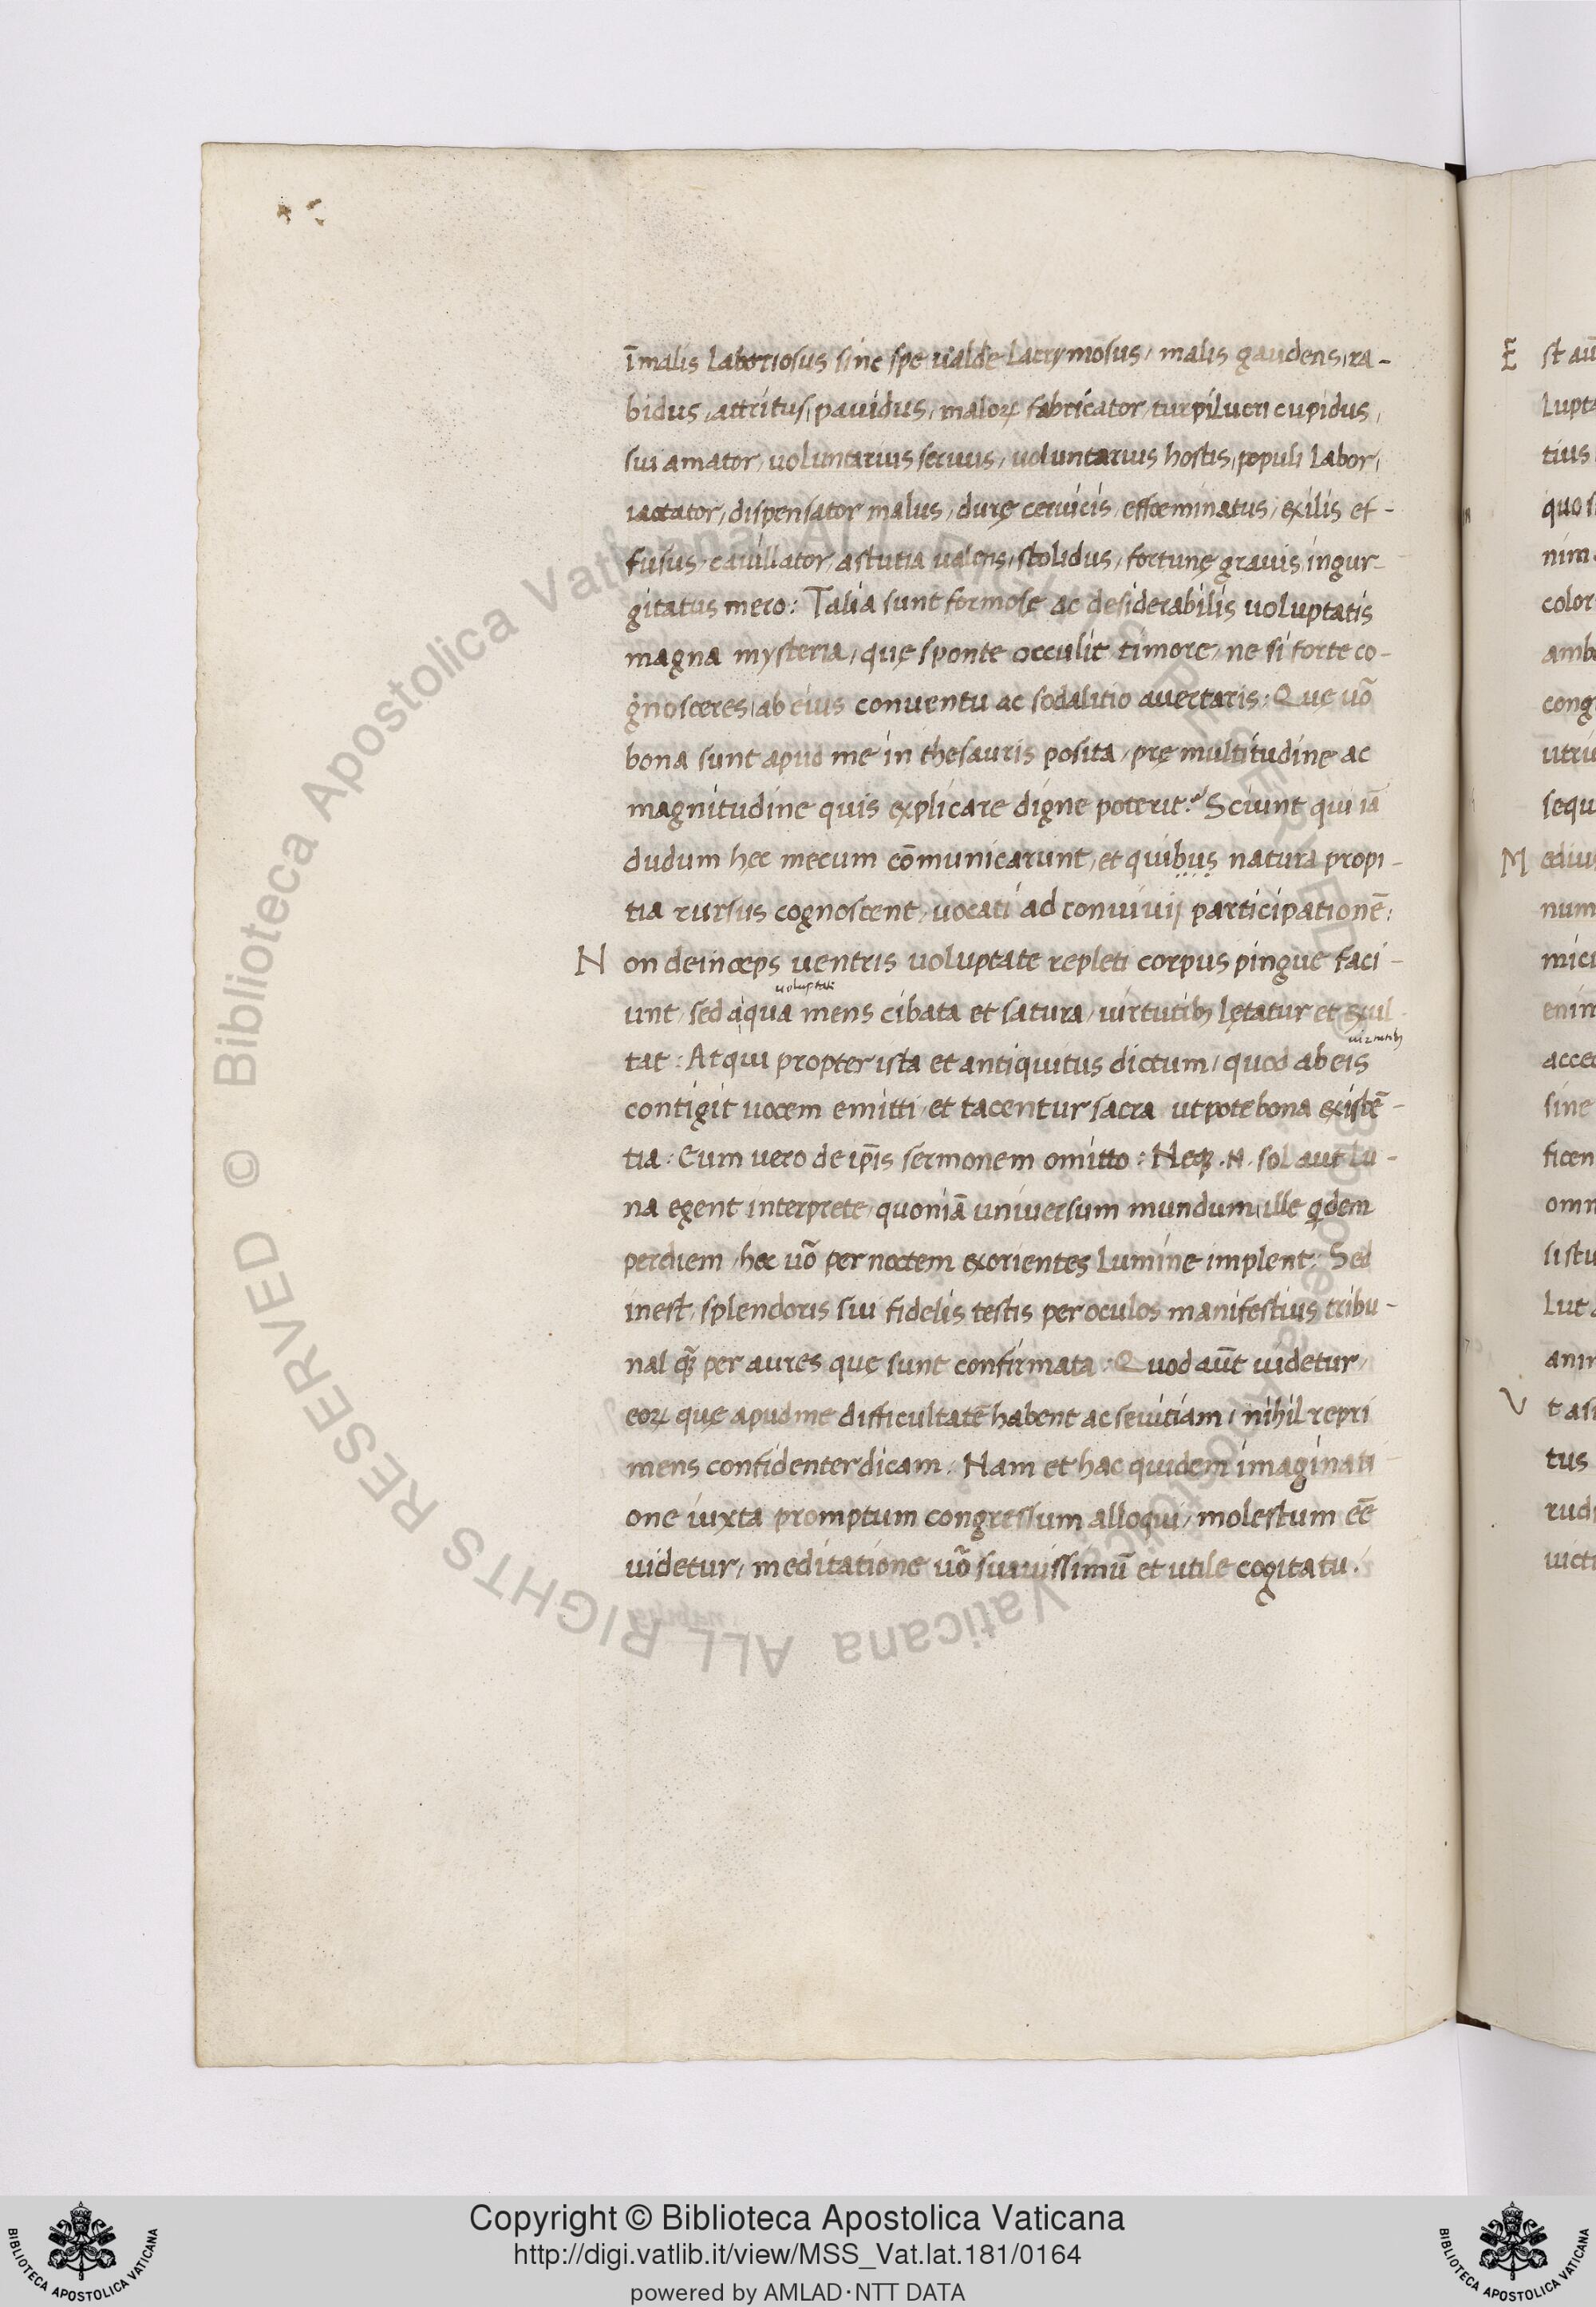 ī malis laboriosus sine spe ualde lacrymosus, malis gaudens, ra-
bidus, attritus, pauidus, maloꝝ fabricator, turpilucri cupidus,
sui amator, uoluntarius seruus, uoluntarius hostis, populi labor,
iactator, dispensator malus, durę ceruicis, effoeminatus, exilis ef-
fusus, cauillator, astutia ualens, stolidus, fortunę grauis, ingur-
gitatus mero: Talia sunt formose ac desiderabilis uoluptatis
magna mysteria, quę sponte occulit timore, ne si forte co-
gnosceres, ab eius conuentu ac sodalitio auertaris: Quę uō
bona sunt apud me in thesauris posita, prę multitudine ac
magnitudine quis explicare digne poterit? Sciunt qui iā
dudum hęc mecum cōmunicarunt, et quibus natura propi-
tia rursus cognoscent, uocati ad conuiuij participationē:
Non deinceps uentris uoluptate repleti corpus pingue faci-
uoluptati
unt, sed a qua mens cibata et satura, uirtutibꝫ lętatur et exul-
uirtutibꝫ
tat: Atqui propter ista et antiquitus dictum, quod ab eis
contigit uocem emitti, et tacentur sacra utpote bona existē-
tia: Eum vero de ip̄is sermonem omitto: Neqꝫ .N. sol aut lu-
na egent interprete, quoniā universum mundum, ille q̄dem
per diem, hec uō per noctem exorientes lumine implent: Sed
inest, splendoris sui fidelis testis per oculos manifestius tribu-
nal q̄ꝫ per aures quę sunt confirmata: Quod aūt uidetur,
eoꝝ quę apud me difficultatē habent ac seuitiam, nihil repri
mens confidenter dicam. Nam et hac quidem imaginati
one iuxta promptum congressum alloqui, molestum eē
uidetur, meditatione uō suauissimū et utile cogitatu.
E st aū
lupta
tius
quo s
nim
color
amb
cong
utriu
sequ
M ediu
num
mici
enim
acced
sine
ficen
omn
sistu
lut
anim
V t as
tus
rud
uict
Copyright © Biblioteca Apostolica Vaticana
http://digi.vatlib.it/view/MSS_Vat.lat.181/0164
powered by AMLAD·NTT DATA
BIBLIOTECA APOSTOLICA VATICANA
BIBLIOTECA APOSTOLICA VATICANA
© Biblioteca Apostolica Vaticana ALL RIGHTS RESERVED
© Biblioteca Apostolica Vaticana ALL RIGHTS RESERVED